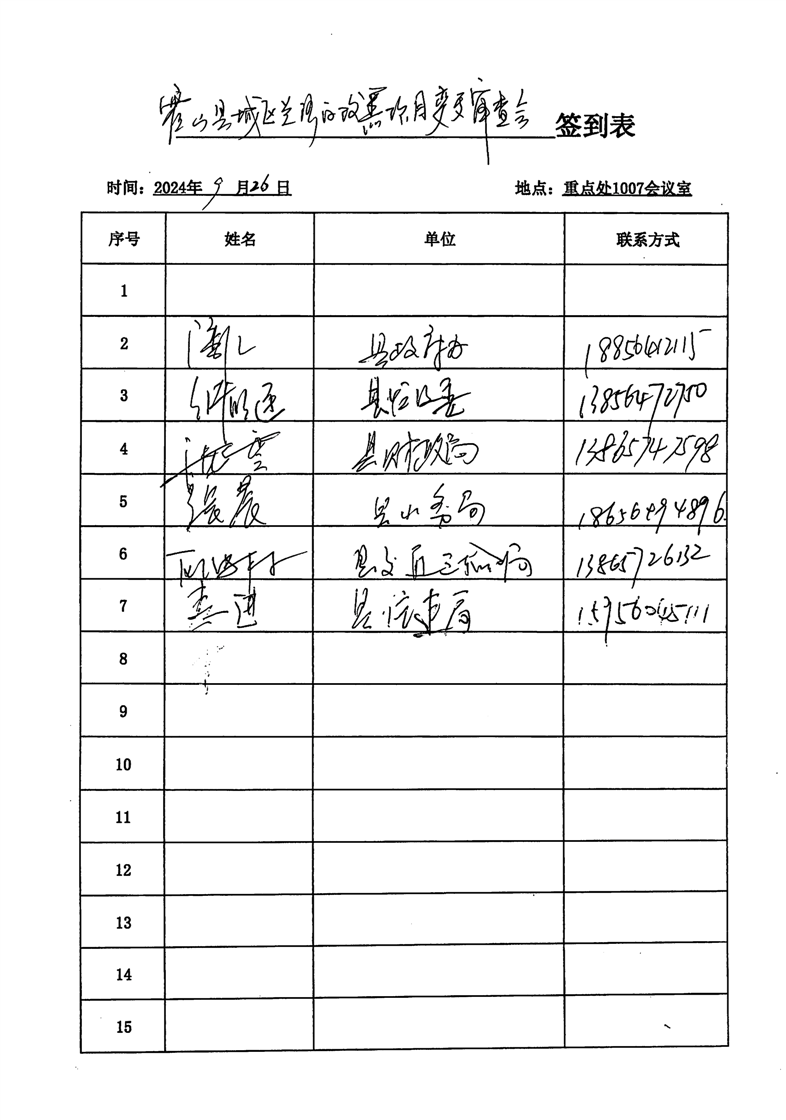 霍山县城区 改善项目变更审查会 签到表
时间：2024年9月26日 地点：重点处1007会议室
序号 姓名 单位 联系方式
1
2 县政府办 18856412115
3 县发改委 13856472750
4 县财政局 13865747598
5 张晨 县水务局 18656494896
6 县交通运输局 13865726132
7 龚进 县住建局 15956045111
8
9
10
11
12
13
14
15